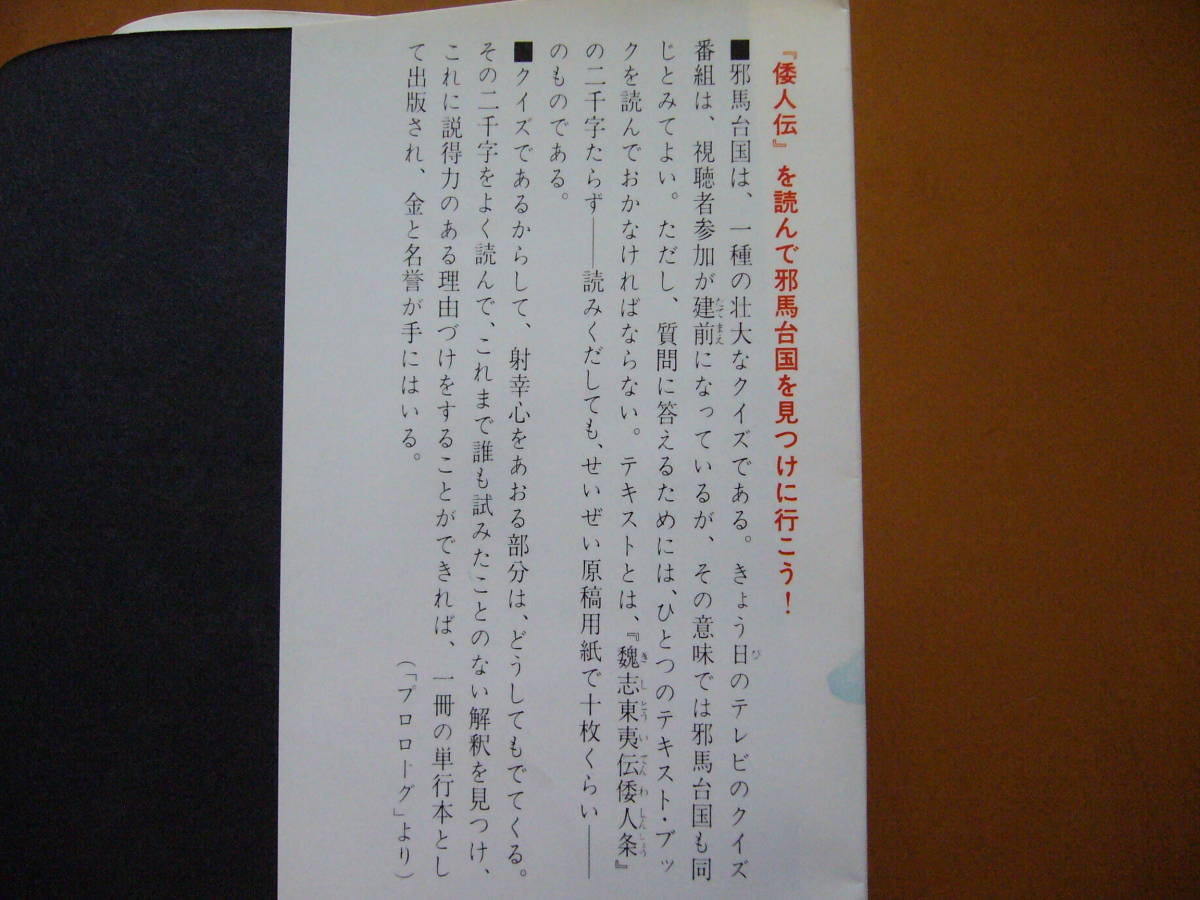 『倭人伝』を読んで邪馬台国を見つけに行こう！
■邪馬台国は、一種の壮大なクイズである。きょう日のテレビのクイズ
番組は、視聴者参加が建前になっているが、その意味では邪馬台国も同
じとみてよい。ただし、質問に答えるためには、ひとつのテキスト・ブッ
クを読んでおかなければならない。テキストとは、『魏志東夷伝倭人条』
の二千字たらず――読みくだしても、せいぜい原稿用紙で十枚くらい――
のものである。
■クイズであるからして、射幸心をあおる部分は、どうしてもでてくる。
その二千字をよく読んで、これまで誰も試みたことのない解釈を見つけ、
これに説得力のある理由づけをすることができれば、一冊の単行本とし
て出版され、金と名誉が手にはいる。
（「プロローグ」より）